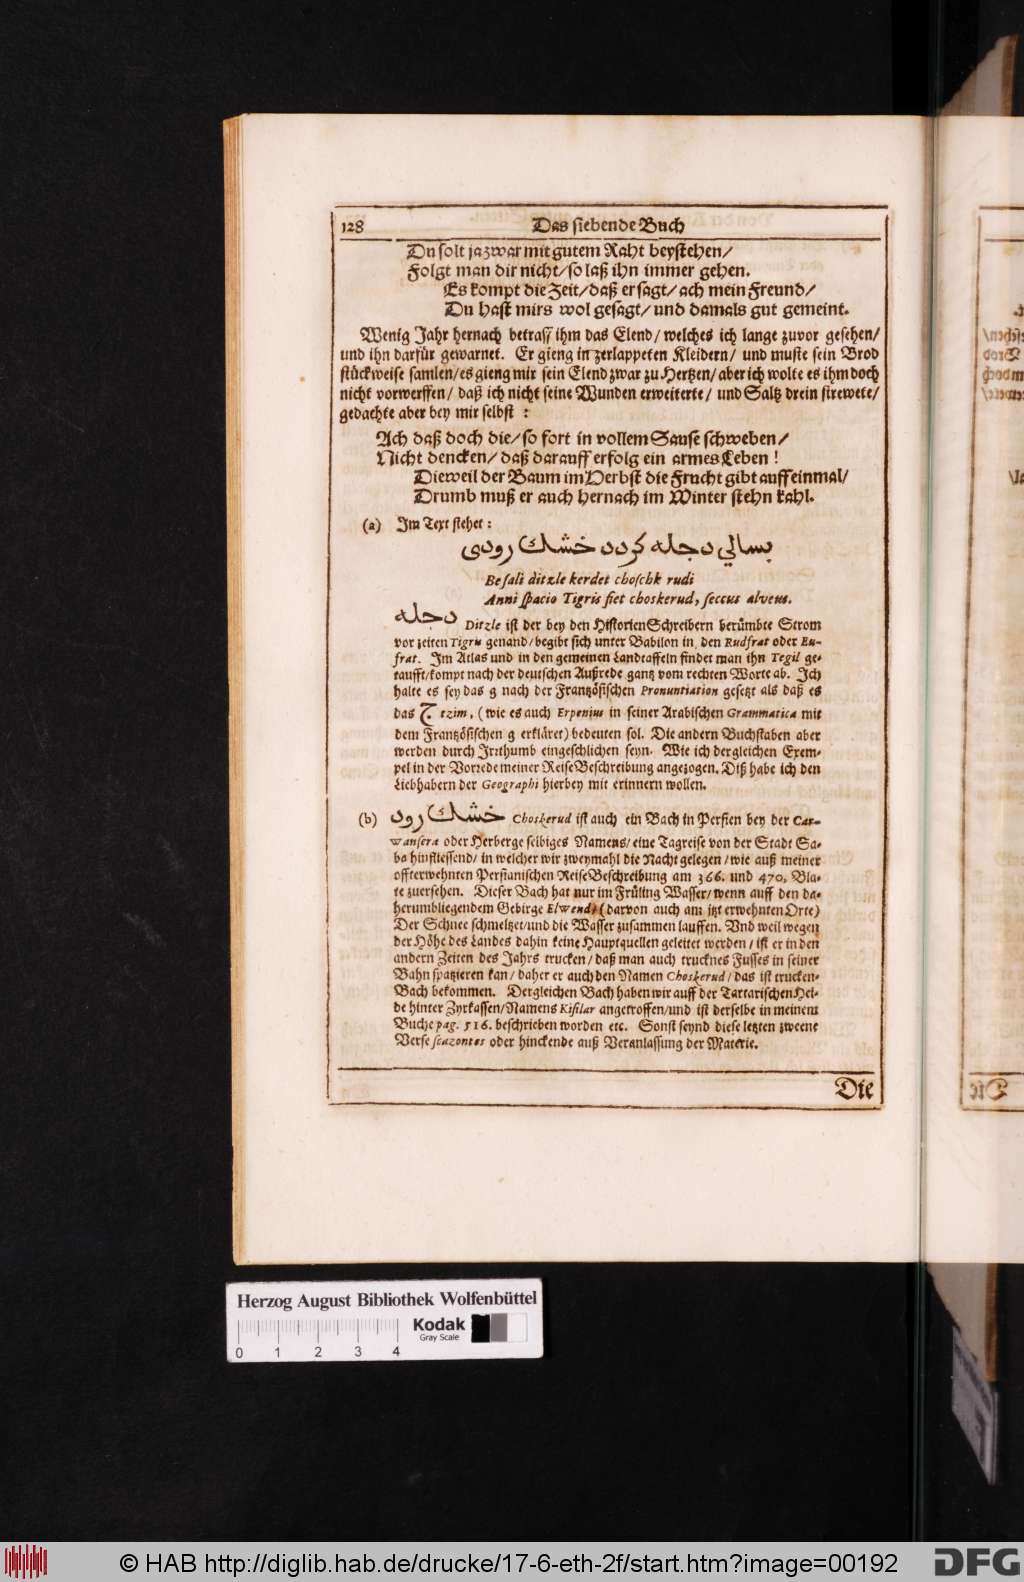 128 Das siebende Buch
Du solt ja zwar mit gutem Raht beystehen/
Folgt man dir nicht/ so laß ihn immer gehen.
Es kompt die Zeit/ daß er sagt/ ach mein Freund/
Du hast mirs wol gesagt/ und damals gut gemeint.
Wenig Jahr hernach betraff ihm das Elend/ welches ich lange zuvor gesehen/
und ihn darfür gewarnet. Er gieng in zerlappeten Kleidern/ und muste sein Brod
stückweise samlen/ es gieng mir sein Elend zwar zu Hertzen/ aber ich wolte es ihm doch
nicht vorwerffen/ daß ich nicht seine Wunden erweiterte/ und Saltz drein strewete/
gedachte aber bey mir selbst:
Ach daß doch die/ so fort in vollem Sause schweben/
Nicht dencken/ daß darauff erfolg ein armes Leben!
Dieweil der Baum im Herbst die Frucht gibt auff einmal/
Drumb muß er auch hernach im Winter stehn kahl.
(a) Im Text stehet:
بسالي دجله كردد خشك رودى
Besali ditzle kerdet choschk rudi
Anni spacio Tigris fiet choskerud, seccus alveus.
دجله Ditzle ist der bey den Historien Schreibern berümbte Strom
vor zeiten Tigris genand/ begibt sich unter Babilon in den Rudfrat oder Eu-
frat. Im Atlas und in den gemeinen Landtaffeln findet man ihn Tegil ge-
taufft/ kompt nach der deutschen Außrede gantz vom rechten Worte ab. Ich
halte es sey das g nach der Frantzösischen Pronuntiation gesetzt als daß es
das ج tzim, (wie es auch Erpenius in seiner Arabischen Grammatica mit
dem Frantzösischen g erkläret) bedeuten sol. Die andern Buchstaben aber
werden durch Irrthumb eingeschlichen seyn. Wie ich dergleichen Exem-
pel in der Vorrede meiner ReiseBeschreibung angezogen. Diß habe ich den
Liebhabern der Geographi hierbey mit erinnern wollen.
(b) خشك رود Choskerud ist auch ein Bach in Persien bey der Car-
wansera oder Herberge selbiges Namens/ eine Tagreise von der Stadt Sa-
ba hinfliessend/ in welcher wir zweymahl die Nacht gelegen/ wie auß meiner
offterwehnten Persianischen ReiseBeschreibung am 366. und 470. Bla-
te zuersehen. Dieser Bach hat nur im Früling Wasser/ wenn auff den da-
herumbliegendem Gebirge Elwend/ (darvon auch am itzt erwehnten Orte)
Der Schnee schmeltzet/ und die Wasser zusammen lauffen. Und weil wegen
der Höhe des Landes dahin keine Hauptquellen geleitet werden/ ist er in den
andern Zeiten des Jahrs trucken/ daß man auch trucknes Fusses in seiner
Bahn spatzieren kan/ daher er auch den Namen Choskerud/ das ist trucken-
Bach bekommen. Dergleichen Bach haben wir auff der Tartarischen Hei-
de hinter Zyrkassen/ Namens Kisilar angetroffen/ und ist derselbe in meinem
Buche pag. 516. beschrieben worden etc. Sonst seynd diese letzten zweene
Verse scazontes oder hinckende auß Veranlassung der Materie.
Die
Herzog August Bibliothek Wolfenbüttel
Kodak
Gray Scale
0 1 2 3 4
© HAB http://diglib.hab.de/drucke/17-6-eth-2f/start.htm?image=00192
DFG